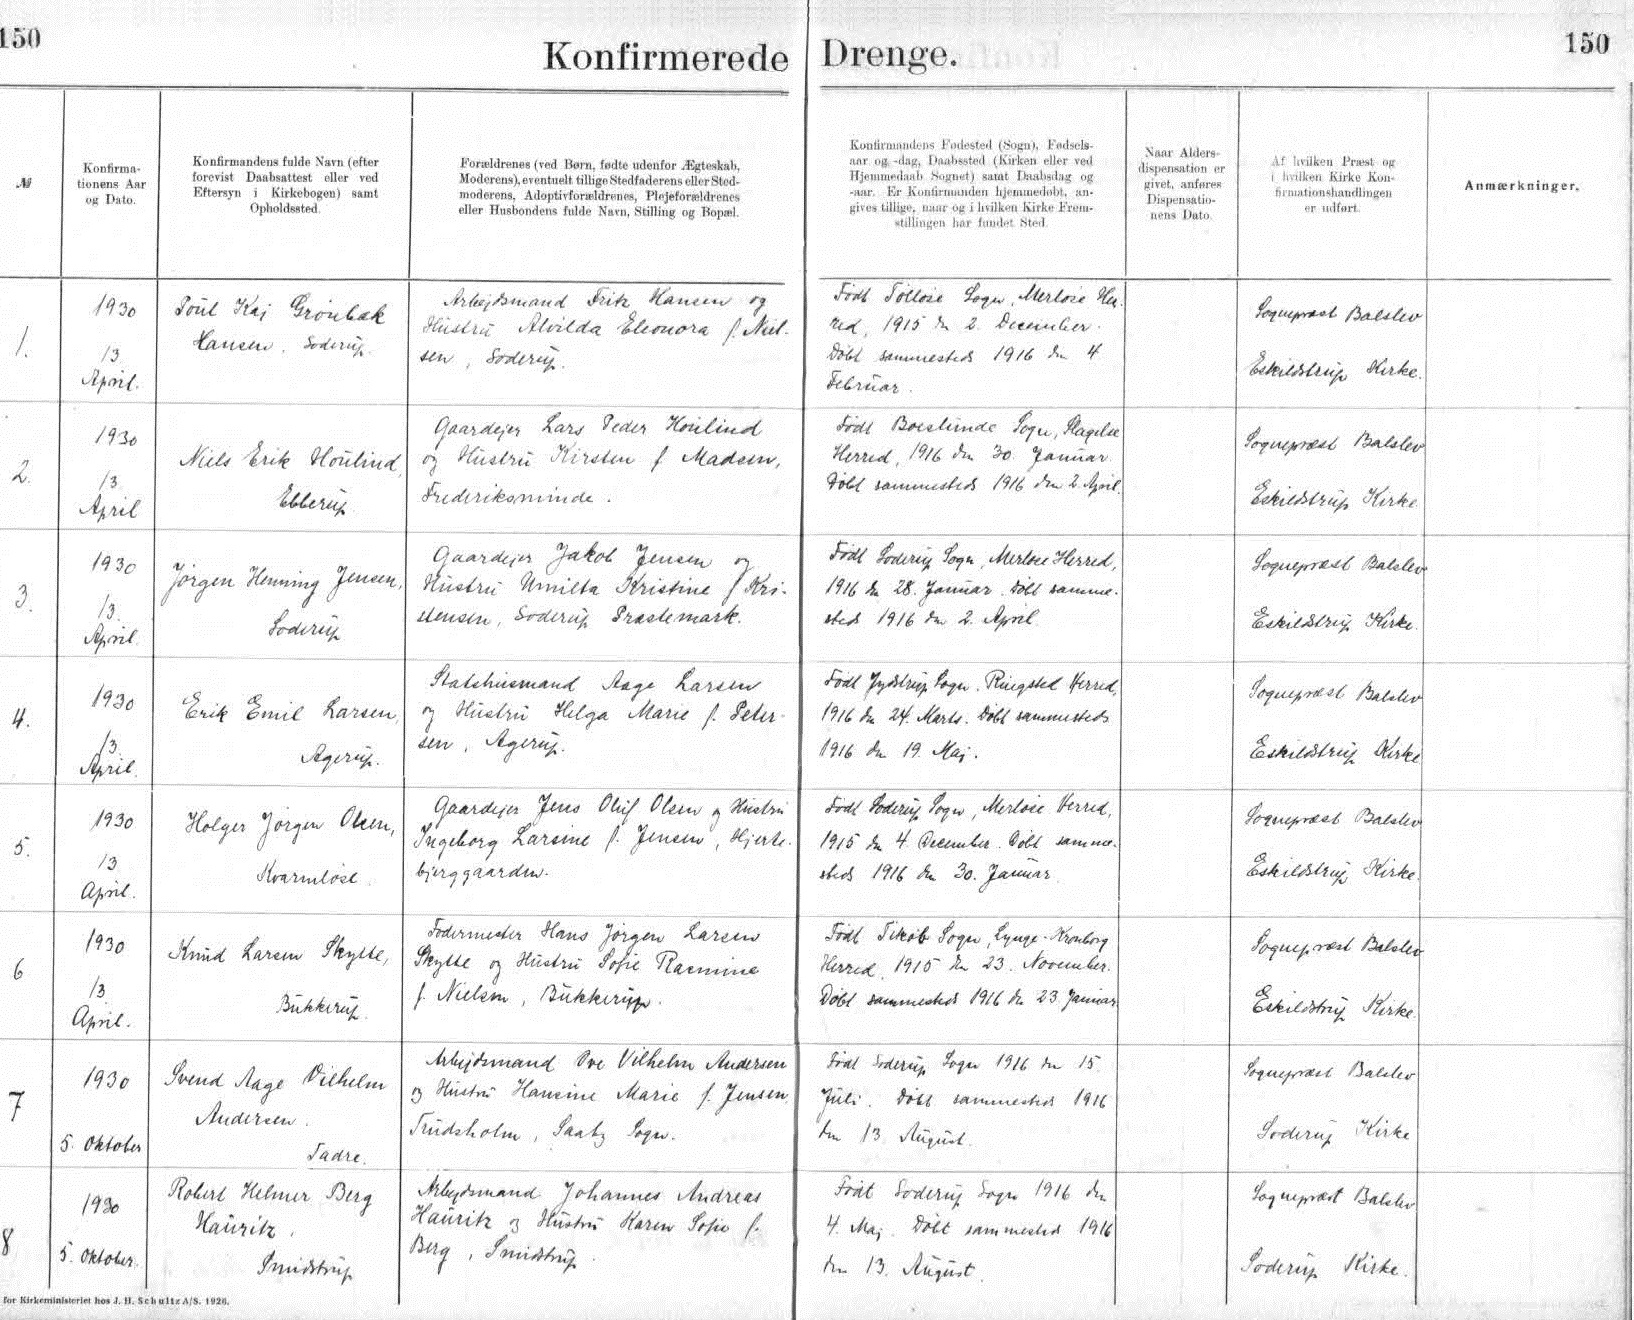 150
Konfirmerede Drenge.
150
№
Konfirma-
tionens Aar
og Dato.
Konfirmandens fulde Navn (efter
forevist Daabsattest eller ved
Eftersyn i Kirkebogen) samt
Opholdssted.
Forældrenes (ved Børn, fødte udenfor Ægteskab,
Moderens), eventuelt tillige Stedfaderens eller Sted-
moderens, Adoptivforældrenes, Plejeforældrenes
eller Husbondens fulde Navn, Stilling og Bopæl.
Konfirmandens Fødested (Sogn), Fødsels-
aar og -dag, Daabssted (Kirken eller ved
Hjemmedaab Sognet) samt Daabsdag og
-aar. Er Konfirmanden hjemmedøbt, an-
gives tillige, naar og i hvilken Kirke Frem-
stillingen har fundet Sted.
Naar Alders-
dispensation er
givet, anføres
Dispensatio-
nens Dato.
Af hvilken Præst og
i hvilken Kirke Kon-
firmationshandlingen
er udført.
Anmærkninger.
1.
1930
13
April.
Poul Kaj Grönbæk
Hansen, Soderup.
Arbejdsmand Fritz Hansen og
Hustru Alvilda Eleonora f. Niel-
sen, Soderup.
Født Tölløse Sogn, Merløse Her-
red, 1915 den 2. December.
Döbt sammesteds 1916 den 4
Februar.
Sognepræst Balslev
Eskildstrup Kirke.
2.
1930
13
April
Niels Erik Houlind,
Ebberup
Gaardejer Lars Peder Houlind
og Hustru Kirsten f. Madsen,
Frederiksminde.
Født Boeslunde Sogn, Slagelse
Herred, 1916 den 30 Januar.
Døbt sammesteds 1916 den 2. April.
Sognepræst Balslev
Eskildstrup Kirke.
3.
1930
13.
April.
Jörgen Henning Jensen,
Soderup
Gaardejer Jakob Jensen og
Hustru Umilta Kristine f. Kri-
stensen, Soderup Præstemark.
Født Soderup Sogn, Merløse Herred,
1916 den 28. Januar. Døbt samme-
steds 1916 den 2. April.
Sognepræst Balslev
Eskildstrup Kirke.
4.
1930
13.
April.
Erik Emil Larsen,
Agerup.
Statshusmand Aage Larsen
og Hustru Helga Marie f. Peter-
sen, Agerup.
Født Jydstrup Sogn, Ringsted Herred,
1916 den 24. Marts. Döbt sammesteds
1916 den 19. Maj.
Sognepræst Balslev
Eskildstrup Kirke
5.
1930
13
April.
Holger Jörgen Olsen,
Kvarmløse.
Gaardejer Jens Oluf Olsen og Hustru
Ingeborg Larsine f. Jensen, Hjerte-
bjerggaarden.
Født Soderup Sogn, Merløse Herred,
1915 den 4. December. Døbt samme-
steds 1916 den 30. Januar.
Sognepræst Balslev
Eskildstrup Kirke.
6
1930
13
April.
Knud Larsen Skytte,
Bukkerup.
Fodermester Hans Jörgen Larsen
Skytte og Hustru Sofie Rasmine
f. Nielsen, Bukkerup.
Født Tikøb Sogn, Lynge-Kronborg
Herred, 1915 den 23. November.
Döbt sammesteds 1916 den 23 Januar.
Sognepræst Balslev
Eskildstrup Kirke.
7
1930
5. Oktober
Svend Aage Vilhelm
Andersen.
Tadre.
Arbejdsmand Ove Vilhelm Andersen
og Hustru Hansine Marie f. Jensen,
Trudsholm, Saaby Sogn.
Født Soderup Sogn 1916 den 15
Juli. Döbt sammesteds 1916
den 13 August.
Sognepræst Balslev
Soderup Kirke
8
1930
5. Oktober.
Robert Helmer Berg
Hauritz,
Smidstrup
Arbejdsmand Johannes Andreas
Hauritz og Hustru Karen Sofie f.
Berg, Smidstrup.
Født Soderup Sogn 1916 den
4. Maj. Döbt sammesteds 1916
den 13. August.
Sognepræst Balslev
Soderup Kirke.
for Kirkeministeriet hos J. H. Schultz A/S. 1926.